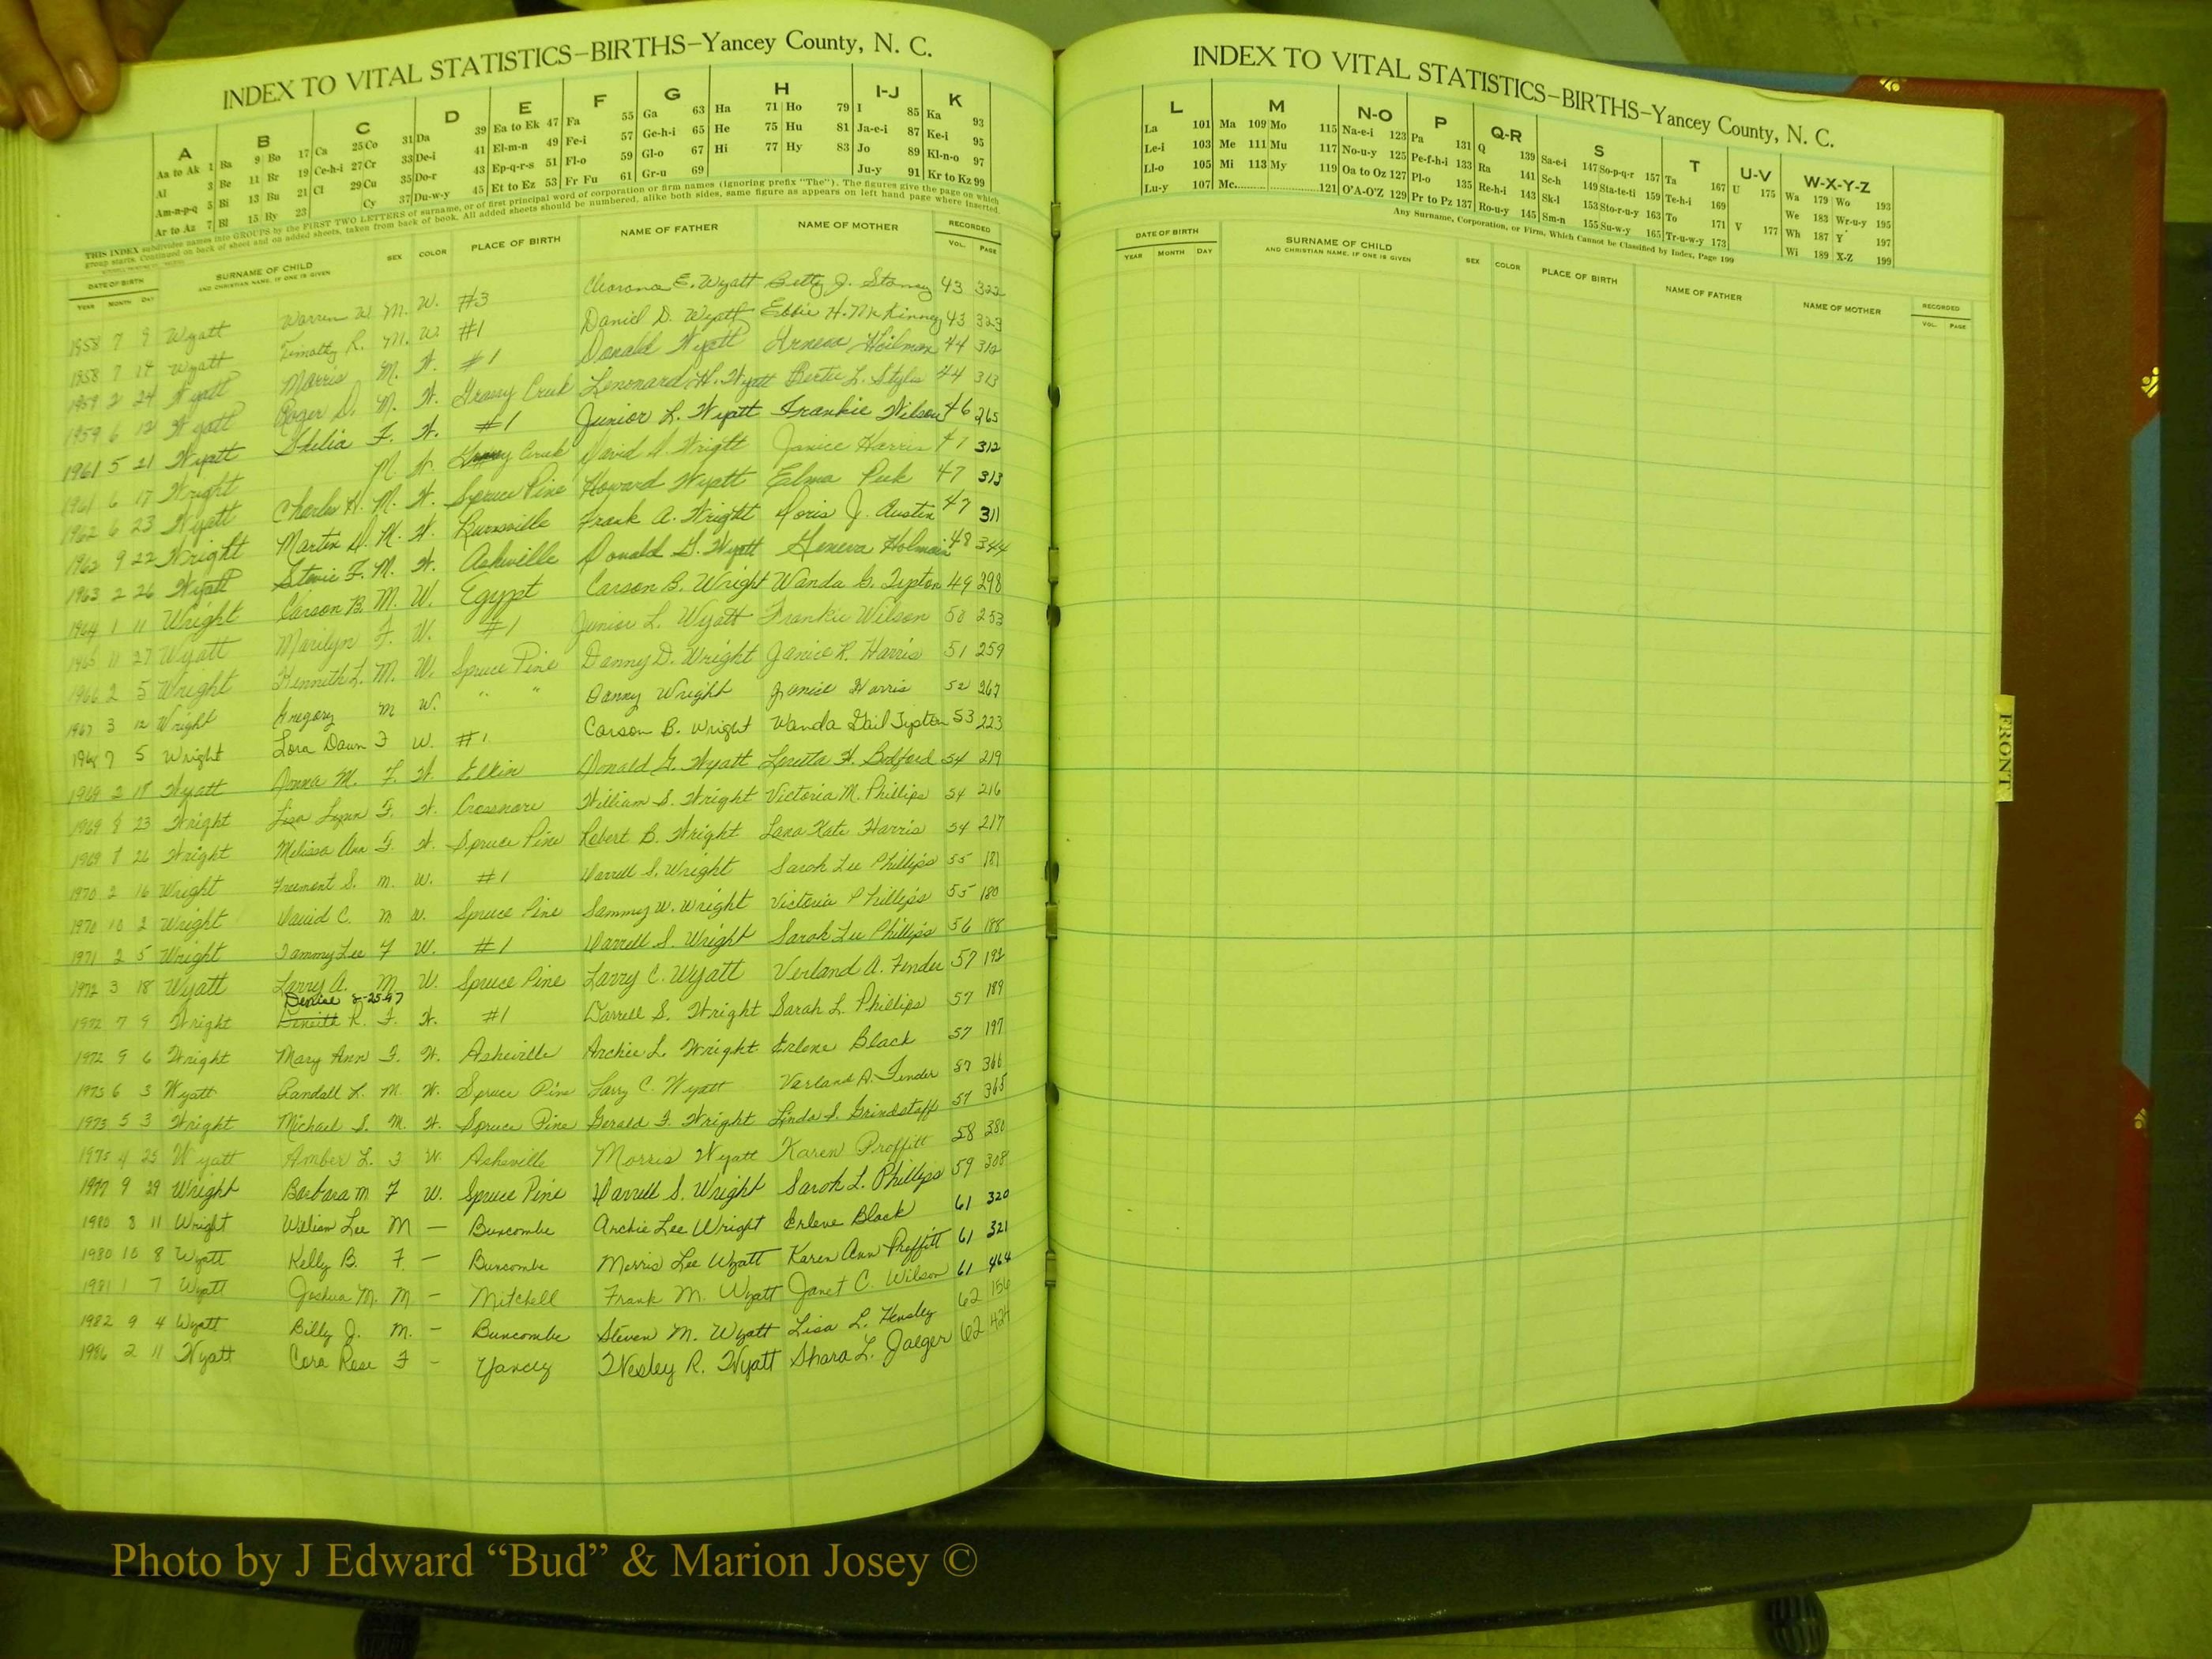 INDEX TO VITAL STATISTICS—BIRTHS—Yancey County, N. C.
A B C D E F G H I-J K
Aa to Ak 1 Ba 9 Bo 17 Ca 25 Co 31 Da 39 Ea to Ek 47 Fa 55 Ga 63 Ha 71 Ho 79 I 85 Ka 93
Al 3 Be 11 Br 19 Ce-h-i 27 Cr 33 De-i 41 El-m-n 49 Fe-i 57 Ge-h-i 65 He 75 Hu 81 Ja-e-i 87 Ke-i 95
Am-n-p-q 5 Bi 13 Bu 21 Cl 29 Cu 35 Do-r 43 Ep-q-r-s 51 Fl-o 59 Gl-o 67 Hi 77 Hy 83 Jo 89 Kl-n-o 97
Ar to Az 7 Bl 15 By 23 Cy 37 Du-w-y 45 Et to Ez 53 Fr Fu 61 Gr-u 69 Ju-y 91 Kr to Kz 99
THIS INDEX subdivides names into GROUPS by the FIRST TWO LETTERS of surname, or of first principal word of corporation or firm names (ignoring prefix "The"). The figures give the page on which
group starts. Continued on back of sheet and on added sheets, taken from back of book. All added sheets should be numbered, alike both sides, same figure as appears on left hand page where inserted.
DATE OF BIRTH SURNAME OF CHILD SEX COLOR PLACE OF BIRTH NAME OF FATHER NAME OF MOTHER RECORDED
YEAR MONTH DAY AND CHRISTIAN NAME, IF ONE IS GIVEN VOL. PAGE
1958 7 9 Wyatt Warren W. M. W. #3 Clearance E. Wyatt Betty J. 43 322
1958 7 14 Wyatt Timothy R. M. W. #1 Daniel D. Wyatt Ebbie H. McKinney 43 323
1959 2 24 Wyatt Morris M. W. #1 Donald Wyatt 44 312
1959 6 12 Wyatt Roger D. M. W. Grassy Creek Lenonard H. Wyatt Bertie L. Styles 44 313
1961 5 21 Wyatt F. W. #1 Junior L. Wyatt Frankie Wilson 46 265
1961 6 17 Wright M W. Grassy Creek David D. Wright Janice Harris 47 312
1962 6 23 Wyatt Charles H. M. W. Spruce Pine Howard Wyatt Elma Peek 47 313
1962 9 22 Wright Martin D. M. W. Burnsville Frank A. Wright Doris J. Austin 47 311
1963 2 26 Wyatt Stevie F. M. W. Asheville Donald G. Wyatt Geneva 48 344
1964 1 11 Wright Carson B. M. W. Egypt Carson B. Wright Wanda G. Tipton 49 298
1965 11 27 Wyatt Marilyn F. W. #1 Junior L. Wyatt Frankie Wilson 50 253
1966 2 5 Wright Kenneth L. M. W. Spruce Pine Danny D. Wright Janice R. Harris 51 259
1967 3 12 Wright Gregory M W. " " Danny Wright Janice Harris 52 267
1968 7 5 Wright Lora Dawn F W. #1 Carson B. Wright Wanda Gail Tipton 53 223
1969 2 18 Wyatt Donna M. F. W. Elkin Donald G. Wyatt Loretta H. Bedford 54 219
1969 8 23 Wright Lisa Lynn F. W. Crossnore William S. Wright Victoria M. Phillips 54 216
1969 8 26 Wright Melissa Ann F. W. Spruce Pine Robert B. Wright Lana Kate Harris 54 217
1970 2 16 Wright Freemont S. M. W. #1 Darrell S. Wright Sarah Lee Phillips 55 181
1970 10 2 Wright David C. M W. Spruce Pine Sammy W. Wright Victoria Phillips 55 180
1971 2 5 Wright Tammy Lee F W. #1 Darrell S. Wright Sarah Lee Phillips 56 188
1972 3 18 Wyatt Larry A. M W. Spruce Pine Larry C. Wyatt Verland A. Fender 57 192
Denise 8-25-97
1972 7 9 Wright R. F. W. #1 Darrell S. Wright Sarah L. Phillips 57 189
1972 9 6 Wright Mary Ann F. W. Asheville Archie L. Wright Erlene Black 57 197
1973 6 3 Wyatt Randall L. M. W. Spruce Pine Larry C. Wyatt Verland A. Fender 57 366
1973 5 3 Wright Michael S. M. W. Spruce Pine Gerald F. Wright Linda S. Grindstaff 57 365
1975 4 25 Wyatt Amber L. F W. Asheville Morris Wyatt Karen Proffitt 58 380
1977 9 29 Wright Barbara M F W. Spruce Pine Darrell S. Wright Sarah L. Phillips 59 308
1980 8 11 Wright William Lee M — Buncombe Archie Lee Wright Erlene Black 61 320
1980 10 8 Wyatt Kelly B. F. — Buncombe Morris Lee Wyatt Karen Ann Proffitt 61 321
1981 1 7 Wyatt Joshua M. M — Mitchell Frank M. Wyatt Janet C. Wilson 61 464
1982 9 4 Wyatt Billy J. M. — Buncombe Steven M. Wyatt Lisa L. Hensley 62 156
1986 2 11 Wyatt Cora Rose F — Yancey Wesley R. Wyatt Shara L. Jaeger 62 424
INDEX TO VITAL STATISTICS—BIRTHS—Yancey County, N. C.
L M N-O P Q-R S T U-V W-X-Y-Z
La 101 Ma 109 Mo 115 Na-e-i 123 Pa 131 Q 139 Sa-e-i 147 So-p-q-r 157 Ta 167 U 175 Wa 179 Wo 193
Le-i 103 Me 111 Mu 117 No-u-y 125 Pe-f-h-i 133 Ra 141 Sc-h 149 Sta-te-ti 159 Te-h-i 169 We 183 Wr-u-y 195
Ll-o 105 Mi 113 My 119 Oa to Oz 127 Pl-o 135 Re-h-i 143 Sk-l 153 Sto-r-u-y 163 To 171 V 177 Wh 187 Y 197
Lu-y 107 Mc 121 O'A-O'Z 129 Pr to Pz 137 Ro-u-y 145 Sm-n 155 Su-w-y 165 Tr-u-w-y 173 Wi 189 X-Z 199
Any Surname, Corporation, or Firm, Which Cannot be Classified by Index, Page 199
DATE OF BIRTH SURNAME OF CHILD SEX COLOR PLACE OF BIRTH NAME OF FATHER NAME OF MOTHER RECORDED
YEAR MONTH DAY AND CHRISTIAN NAME, IF ONE IS GIVEN VOL. PAGE
FRONT
Photo by J Edward “Bud” & Marion Josey ©